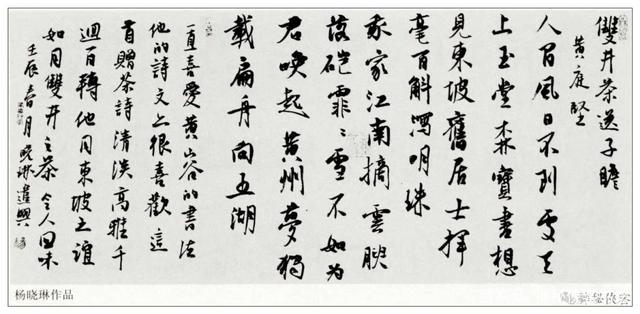 雙井茶送子瞻
黃庭堅
人間風日不到處天
上玉堂森寶書想
見東坡舊居士揮
毫百斛瀉明珠
我家江南摘雲腴
落磑霏〻雪不如為
君喚起黃州夢獨
載扁舟向五湖
一直喜愛黃山谷的書法
他的詩文亦很喜歡這
首贈茶詩清淡高雅千
迴百轉他同東坡之誼
如同雙井之茶令人回味
壬辰春月晓琳遣興
杨晓琳作品